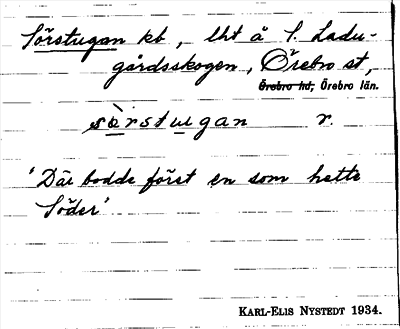 Sörstugan kb, lht å S. Ladu-
gårdsskogen, Örebro st,
Örebro hd, Örebro län.
sö̀rstugan r.
'Där bodde först en som hette
Söder'
KARL-ELIS NYSTEDT 1934.